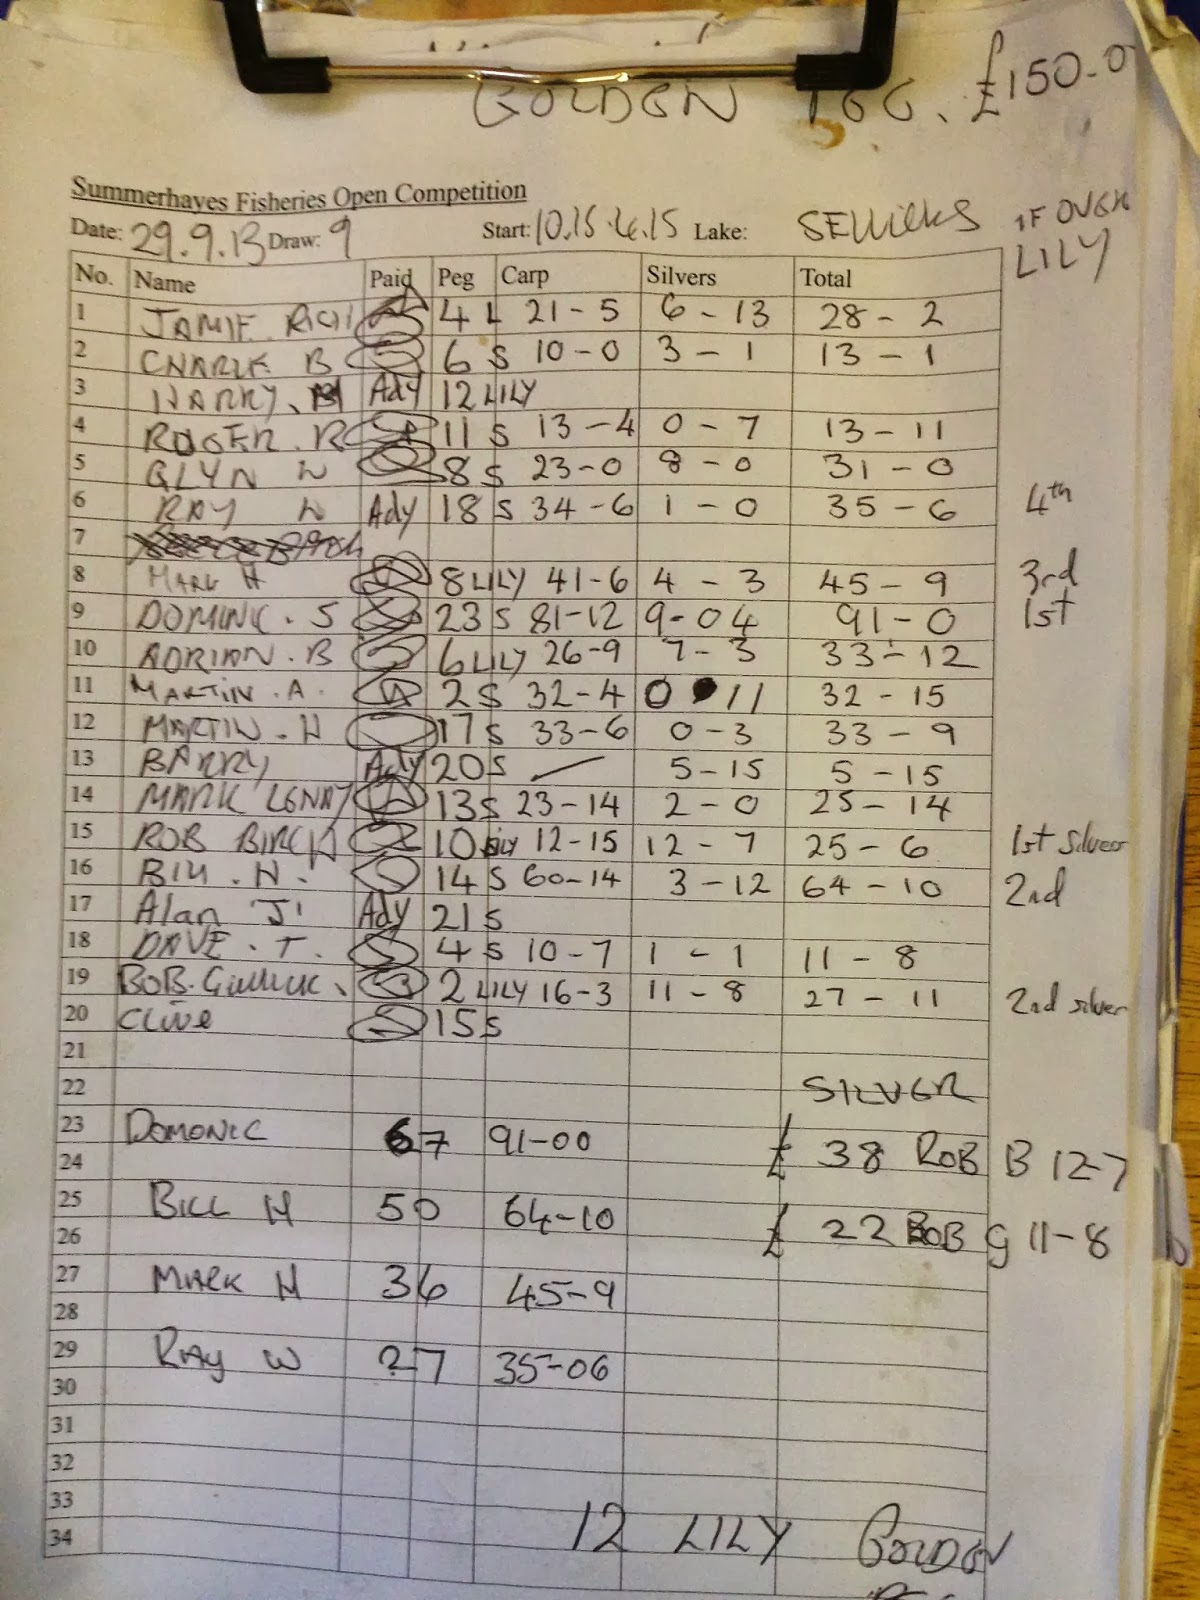 GOLDEN PEG. £150.0
Summerhayes Fisheries Open Competition
Date: 29.9.13 Draw: 9 Start: 10.15-4.15 Lake: SELLICKS IF OVER
LILY
No. Name Paid Peg Carp Silvers Total
1 JAMIE RICH 4 L 21-5 6-13 28-2
2 CHARLE B 6 S 10-0 3-1 13-1
3 HARRY. Ady 12 LILY
4 ROGER. R 11 S 13-4 0-7 13-11
5 GLYN W 8 S 23-0 8-0 31-0
6 RAY W Ady 18 S 34-6 1-0 35-6 4th
7
8 MARK H 8 LILY 41-6 4-3 45-9 3rd
9 DOMINIC. S 23 S 81-12 9-04 91-0 1st
10 ADRIAN. B 6 LILY 26-9 7-3 33-12
11 MARTIN. A. 2 S 32-4 0 11 32-15
12 MARTIN. H 17 S 33-6 0-3 33-9
13 BARRY Ady 20 S 5-15 5-15
14 MARK LENAY 13 S 23-14 2-0 25-14
15 ROB BIRCH 10 Lily 12-15 12-7 25-6 1st Silvers
16 Bill. H. 14 S 60-14 3-12 64-10 2nd
17 Alan 'J' Ady 21 S
18 DAVE. T. 4 S 10-7 1-1 11-8
19 BOB. Gullick. 2 LILY 16-3 11-8 27-11 2nd silver
20 Clive 15 S
21
22 SILVER
23 DOMONIC 67 91-00
24 £ 38 ROB B 12-7
25 BILL H 50 64-10
26 £ 22 BOB G 11-8
27 MARK H 36 45-9
28
29 RAY W 27 35-06
30
31
32
33
34 12 LILY GOLDEN